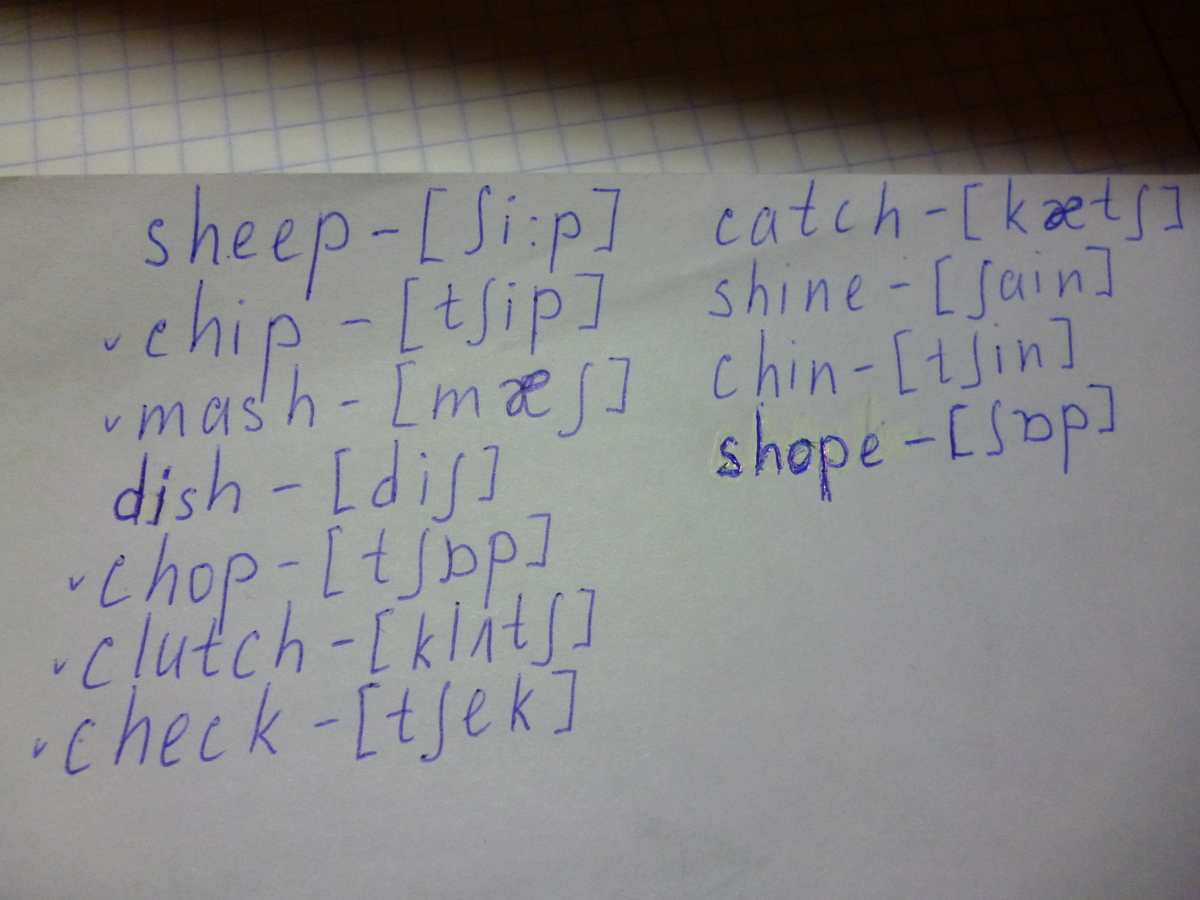 sheep - [ʃi:p]
chip - [tʃip]
mash - [mæʃ]
dish - [diʃ]
chop - [tʃɒp]
clutch - [klʌtʃ]
check - [tʃek]
catch - [kætʃ]
shine - [ʃain]
chin - [tʃin]
shope - [ʃɒp]